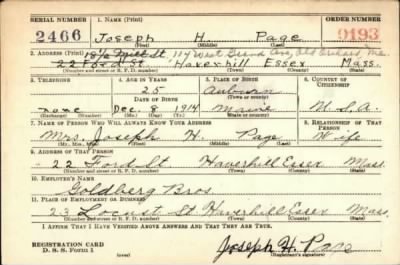 SERIAL NUMBER 1. NAME (Print) ORDER NUMBER
2466 Joseph H. Page 9193
(First) (Middle) (Last)
2. ADDRESS (Print) 18½ Mill St. 114 West Grand Ave, Old Orchard, Me.
22 Ford St. Haverhill Essex Mass.
(Number and street or R. F. D. number) (Town) (County) (State)
3. TELEPHONE 4. AGE IN YEARS 5. PLACE OF BIRTH 6. COUNTRY OF CITIZENSHIP
25 Auburn
DATE OF BIRTH (Town or county)
none Dec. 8 1914 Maine U.S.A.
(Exchange) (No.) (Mo.) (Day) (Yr.) (State or country)
7. NAME OF PERSON WHO WILL ALWAYS KNOW YOUR ADDRESS 8. RELATIONSHIP OF THAT PERSON
Mrs. Joseph H. Page Wife
(Mr., Mrs., Miss) (First) (Middle) (Last)
9. ADDRESS OF THAT PERSON
22 Ford St Haverhill Essex Mass
(Number and street or R. F. D. number) (Town) (County) (State)
10. EMPLOYER'S NAME
Goldberg Bros.
11. PLACE OF EMPLOYMENT OR BUSINESS
23 Locust St Haverhill Essex Mass.
(Number and street or R. F. D. number) (Town) (County) (State)
I AFFIRM THAT I HAVE VERIFIED ABOVE ANSWERS AND THAT THEY ARE TRUE.
REGISTRATION CARD
D. S. S. Form 1 (over) Joseph H. Page
(Registrant's signature)